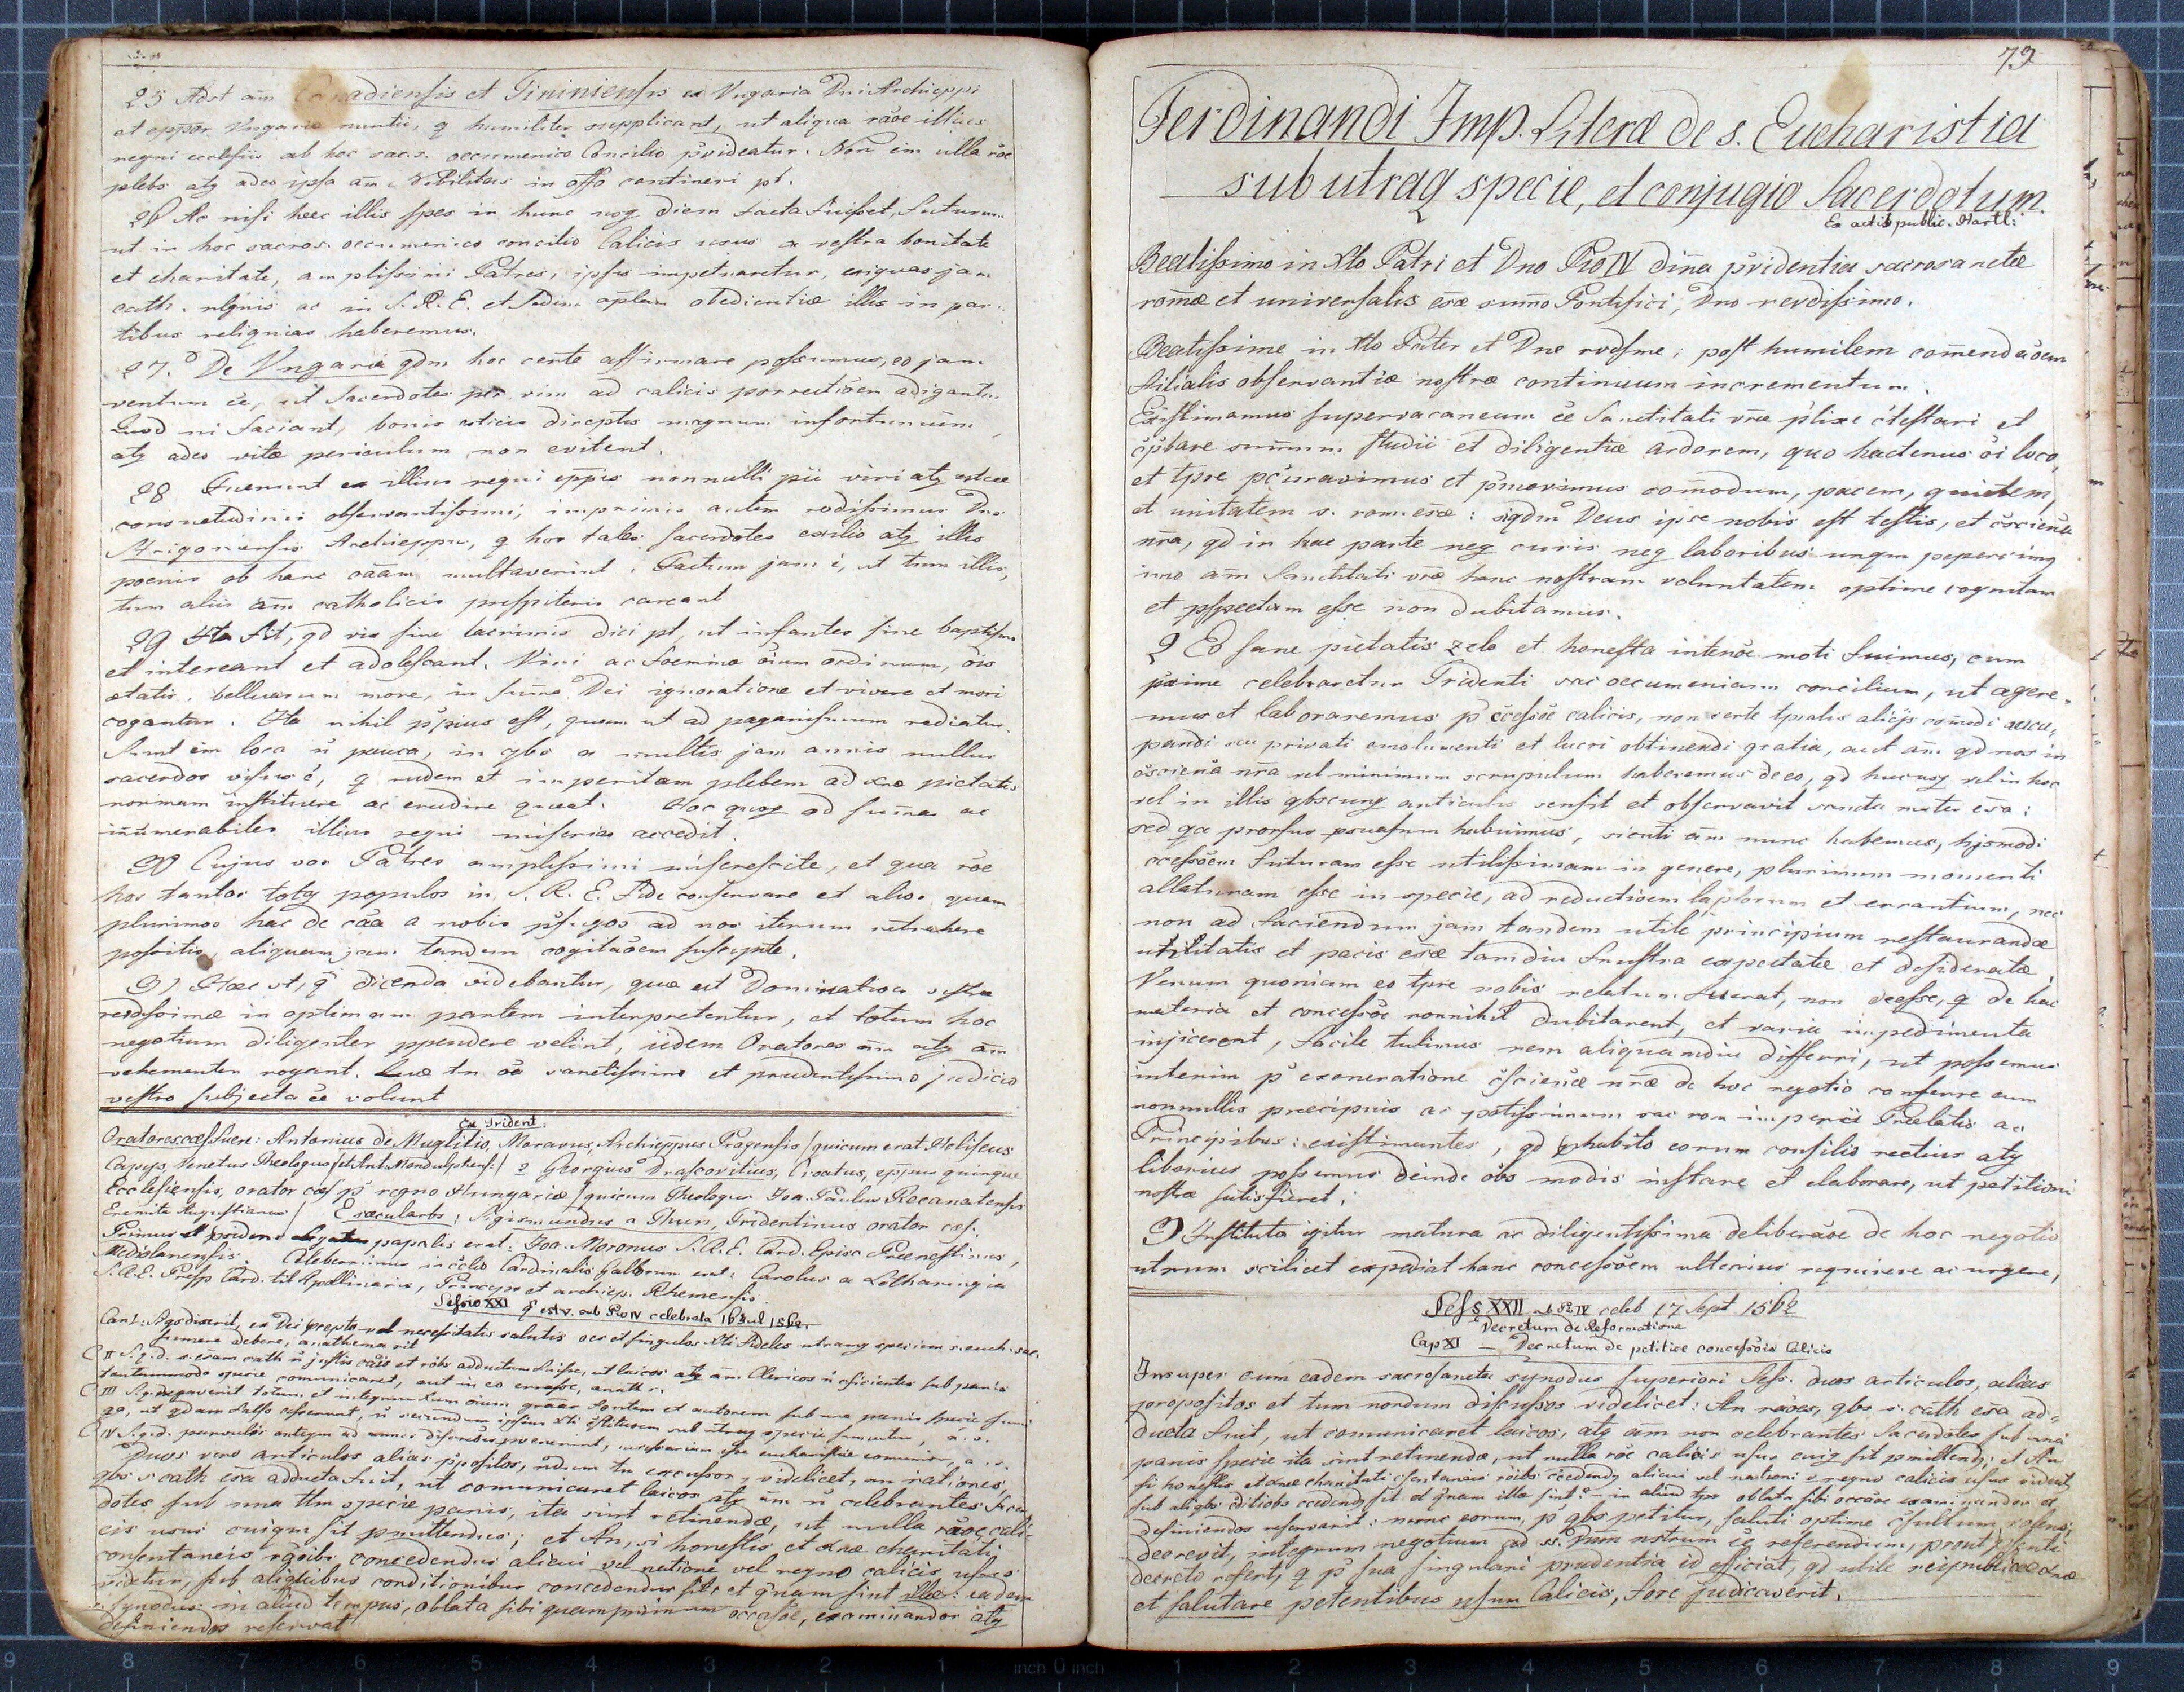 25 Adst am̄ Canadiensis et Tininiensis ex Vngaria Dni Archieppi
et eppor Vngariæ nuntii, q humiliter supplicant, ut aliqua rāōe illius
regni ecclesiis ab hoc sacs. oecumenico Concilio p̄videatur. Non em̄ ulla rōe
plebs atq adeo ipsa am̄ Nobilitas in offo contineri pt.
26 Ac nisi hæc illis spes in hunc usq diem facta fuisset, futurum
ut in hoc sacros. oecumenico concilio Calicis usus a vestra bonitate
et charitate, amplissimi Patres, ipsis impetraretur, exiguas jam
cath. religionis ac in S. R. E. et Sedem aplam obedientiæ illis in par-
tibus reliquias haberemus.
27. De Vngaria qdm hoc certe affirmare possumus, eo jam
ventum ee, ut Sacerdotes per vim ad calicis porrectiōem adigantur.
Quod ni faciant, bonis esticis direptis magnum infortunium,
atq adeo vitæ periculum non evitent.
28 Fuerunt ex illius regni eppis nonnulli pii viri atq
consuetudinis observantissimi, imprimis autem rvdissimus Dns
Strigoniensis Archieppus, q hos tales sacerdotes exilio atq illis
poenis ob hanc cāām multaverint. Factum jam ē, ut tum illis,
tum aliis am̄ catholicis prespiteris careant
29 Ita fit, qd vix sine lacrimis dici pt, ut infantes sine baptismo
et intereant et adolescant. Viri ac foeminæ ōium ordinum, ōis
ætatis, belluarum more, in summa Dei ignoratione et vivere et mori
cogantur. Ita nihil p̄pius est, quam ut ad paganismum rediatur.
Sunt em̄ loca n̄ pauca, in qbs a multis jam annis nullus
sacerdos visus ē, q rudem et imperitam plebem ad xnæ pietatis
normam instituere ac erudire queat. Hoc quoq ad summas ac
in̄umerabiles illius regni miserias accedit.
30 Cujus vos Patres amplissimi miserescite, et qua rōe
hos tantos totq populos in S. R. E. Fide conservare et alios quam
plurimos hac de cāa a nobis p̄fugos ad nos iterum retrahere
possitis, aliquam jam tandem cogitāōem suscipite.
31 Hæc st, q dicenda videbantur, quæ ut Dominationes vestræ
revdissimæ in optimam partem interpretentur, et totum hoc
negotium diligenter ppendere velint, iidem Oratores am̄ atq am̄
vehementer rogant. Quæ tn ōa sanctissimo et prudentissimo judicio
vestro subjecta ēē volunt
Ex Trident.
Oratores cæs fuere: Antonius de Muglitio, Moravus, Archieppus Pragensis /quicum erat Heliseus
Capys, Venetus Theologus/ et Ant. Mondulphens:/ 2 Georgius Drascovitius, Croatus, eppus quinque
Ecclesiensis, orator cæs p̄ regno Hungariæ /quicum Theologus Joa. Paulus Recanatensis
Eremita Augustianus/ E sæcularbs: Sigismundus a Thun, Tridentinus orator cæs.
Primus et p̄sidens legatus papalis erat: Joa. Moronus S.R.E. Card. Episc Prænestinus,
Mediolanensis. Celeberrimus in cclio Cardinalis Gallorum erat: Carolus a Lotharingia
S.R.E. Presb Card. tit Apollinaris, Princeps et archiep. Rhemensis.
Sessio XXI q est v. sub Pio IV celebrata 16 Jul 1562.
Can I: Sqs dixerit, ex Dei præpto vel necessitatis salutis oes et singulos Xti Fideles utramq speciem s. euch. sac.
sumere debere, anathema sit
C II S.q.d. s. ēsam cath n̄ justis cāis et rōbs adductam fuisse, ut laicos atq am̄ Clericos n̄ cficientes sub panis
tantummodo specie comunicaret, aut in eo errasse, anath s.
C III S.q.negaverit totum et integrum Xtum ōium grāar fontem et autorem sub una panis specie sumi
qa, ut qdam falso asserunt, n̄ secundum ipsius Xti institutōem sub utraq specie sumatur, a. s.
C IV S.q.d. parvulis antequ ad annos discretōis pvenerint, necessariam esse eucharistiæ comunioem, a. s.
Duos vero articulos alias p̄positos, ndum tn excussos, videlicet, an rationes,
qbs s. cath ēsa adducta fuit, ut comunicaret laicos atq am̄ n̄ celebrantes Sacer
dotes sub una ttm specie panis, ita sint retinendæ, ut nulla rāōe cali-
cis usus cuiqm sit pmittendus; et An, si honestis et xnæ charitati
consentaneis rāoibs concedendus alicui vel nationi vel regno calicis usus
videtur, sub aliquibus conditionibus concedendus sit, et qnam sint illæ: eadem
s. Synodus in aliud tempus, oblata sibi quamprimum occasōe, examinandos atq
definiendos reservat
79
Ferdinandi Imp. Literæ de s. Eucharistia
sub utraq specie, et conjugio Sacerdotum.
Ex actib public. Hartl:
Beatissimo in Xto Patri et Dno Pio IV dīna p̄videntia sacrosanctæ
romæ et universalis esæ sumo Pontifici, Dno revdissimo.
Beatissime in Xto Pater et Dne rvdsme; post humilem comendāōem
filialis observantiæ nostræ continuum incrementum.
Existimamus supervacaneum ēē Sanctitati vræ p̄lixe c̄testari et
c̄p̄bare summum studii et diligentiæ ardorem, quo hactenus ōi loco,
et tpre p̄curavimus et p̄movimus comodum, pacem, quietem,
et unitatem s. rom. esæ: siqdm Deus ipse nobis est testis, et c̄sciena
nra, qd in hac parte neq curis neq laboribus unqm pepercimq
imo am̄ Sanctitati vræ hanc nostram voluntatem optime cognitam
et pspectam esse non dubitamus.
2 Eo sane pietatis zelo et honesta intenōe moti fuimus, cum
p̄xime celebraretur Tridenti sac oecumenicum concilium, ut agere-
mus et laboraremus p̄ ccessōe calicis, non certe tpralis alicjs comodi aucu,
pandi seu privati emolumenti et lucri obtinendi gratia, aut am̄ qd nos in
c̄sciena nra vel minimum scrupulum haberemus de eo, qd hucusq vel in hoc
vel in illis qbscunq articulis sensit et observavit sancta mater esa:
sed qa prorsus psuasum habuimus, sicuti am̄ nunc habemus, hjsmodi
ccessōem futuram esse utilissimam in genere, plurimum momenti
allaturam esse in specie, ad reductioem lapsorum et errantium, nec
non ad faciendum jam tandem utile principium restaurandæ
utilitatis et pacis esæ tamdiu frustra expectatæ et desideratæ.
Verum quoniam eo tpre nobis relatum fuerat, non deesse, q de hac
materia et concessōe nonnihil dubitarent, et varia impedimenta
injicerent, facile tulimus rem aliquamdiu differri, ut possemus
interim p̄ exoneratione c̄scienæ nræ de hoc negotio conferre cum
nonnullis præcipuis ac potissimum sac rom imperii Prælatis ac
Principibus: existimantes, qd phabito eorum consilio rectius atq
liberius possemus deinde ōbs modis instare et elaborare, ut petitioni
nostræ satisfieret.
3 Instituta igitur matura ac diligentissima deliberāōe de hoc negotio
utrum scilicet expediat hanc concessōem ulterius requirere ac urgere,
Sess XXII sub P IV celeb 17 Sept 1562
Decretum de Reformatione
Cap XI — Decretum de petitiōe concessōis Calicis
Insuper cum eadem sacrosancta synodus superiori Sess. duos articulos, alias
propositos et tum nondum discussos videlicet: An rāōes, qbs s. cath esa ad-
ducta fuit, ut comunicaret laicos, atq am̄ non celebrantes Sacerdotes sub una
panis specie ita sint retinendæ, ut nulla rōe calicis usus cuiq sit pmittendq; et An
si honestis et xnæ charitati c̄sentaneis rōibs c̄cedendq alicui vel nationi v regno calicis usus videat
sub aliqbs cditiobs ccedendq sit et qnam illæ sint? — in aliud tps oblata sibi occāōe examinandos et
definiendos reservarit: nunc eorum, p qbs petitur, saluti optime c̄sultum volens,
decrevit, integrum negotium ad ss. Dnm nostrum ēē referendum, prout p̄senti
decreto refert, q p̄ sua singulari prudentia id efficiat, qd utile reipublicæ xnæ
et salutare petentibus usum Calicis, fore judicaverit.